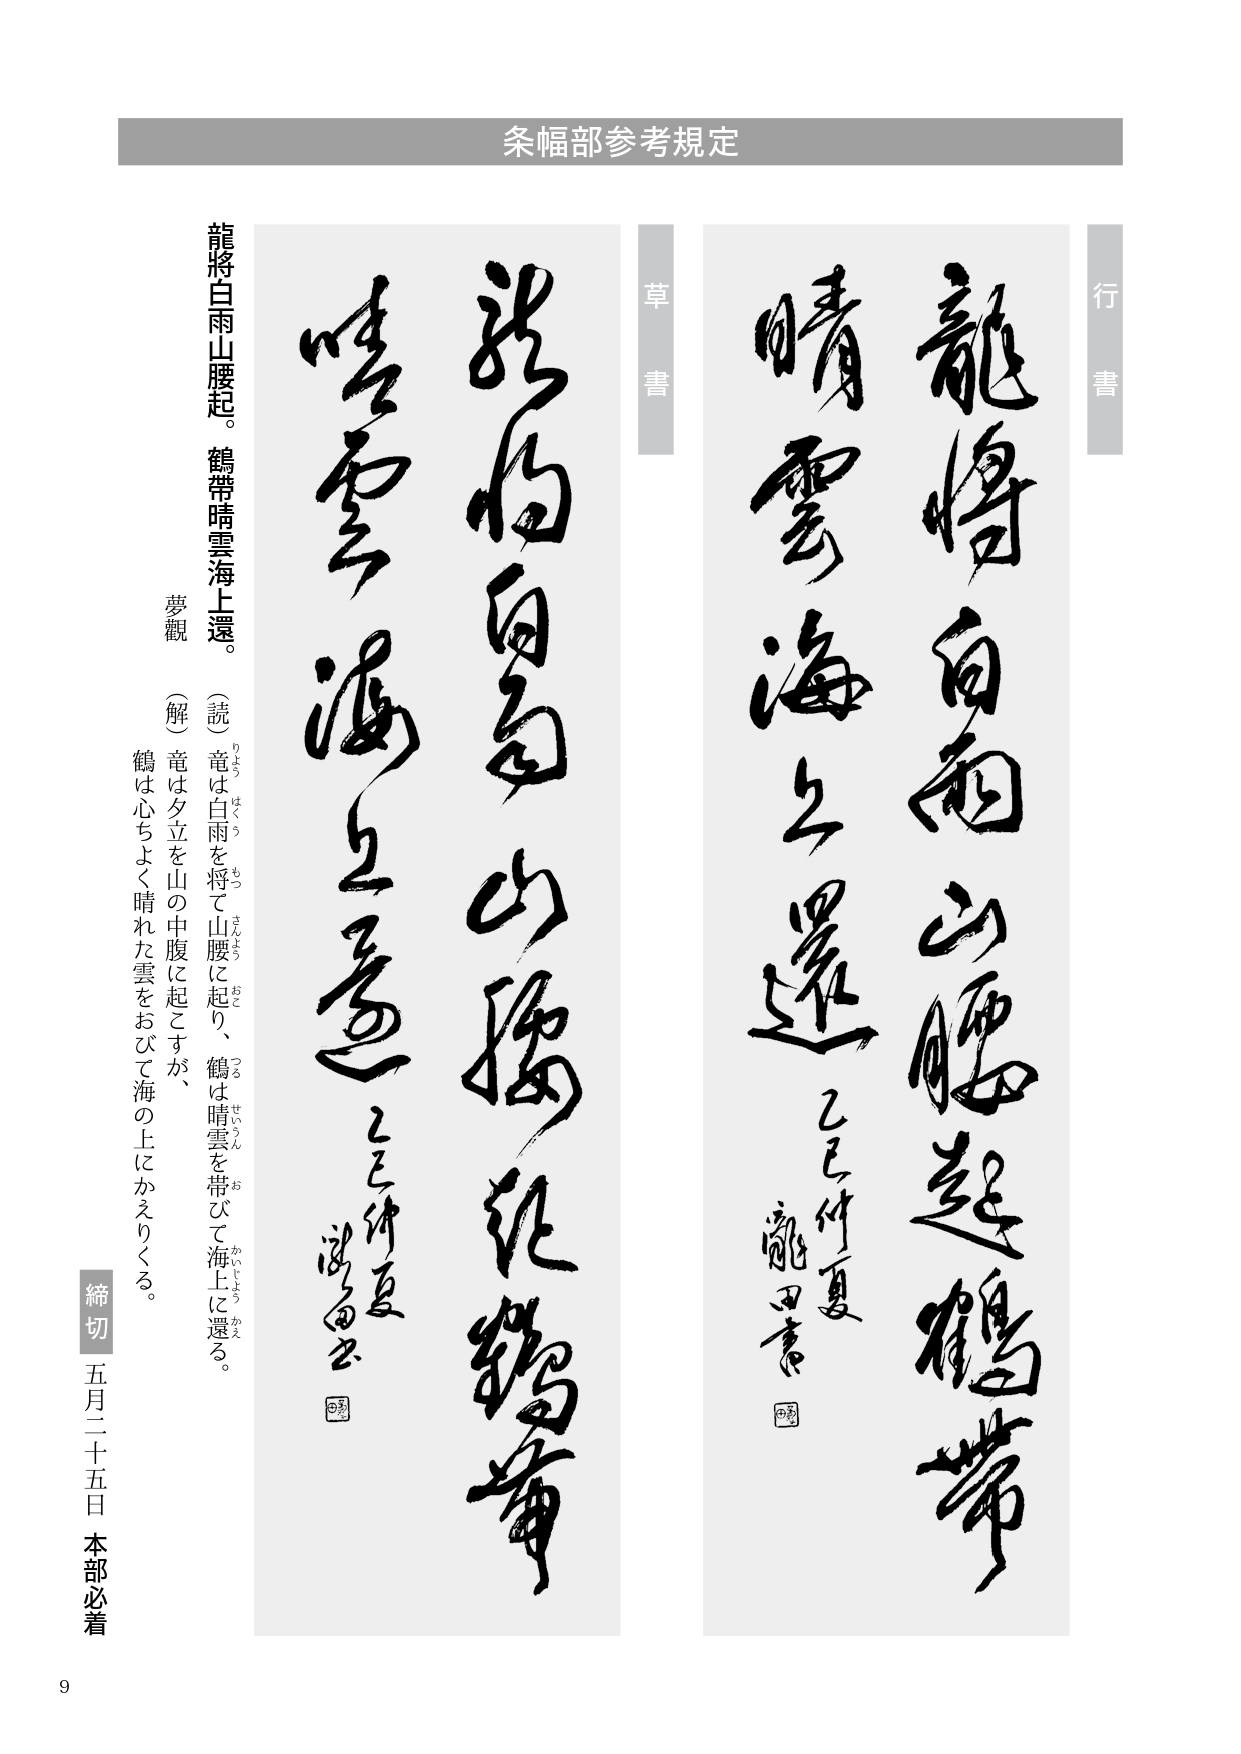 条幅部参考規定
行書
龍將白雨山腰起鶴帶
晴雲海上還
乙巳仲夏
龍田書
草書
龍將白雨山腰起鶴帶
晴雲海上還
乙巳仲夏
龍田書
龍將白雨山腰起。鶴帶晴雲海上還。
夢觀
（読）竜は白雨を将て山腰に起り、鶴は晴雲を帯びて海上に還る。
りようはくうもつさんようおこつるせいうんおかいじようかえ
（解）竜は夕立を山の中腹に起こすが、
鶴は心ちよく晴れた雲をおびて海の上にかえりくる。
締切 五月二十五日 本部必着
9